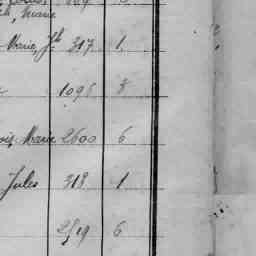 Marie
Marie, Jh 317 1
1096 3
Marie 2600 6
Jules 318 1
2519 6